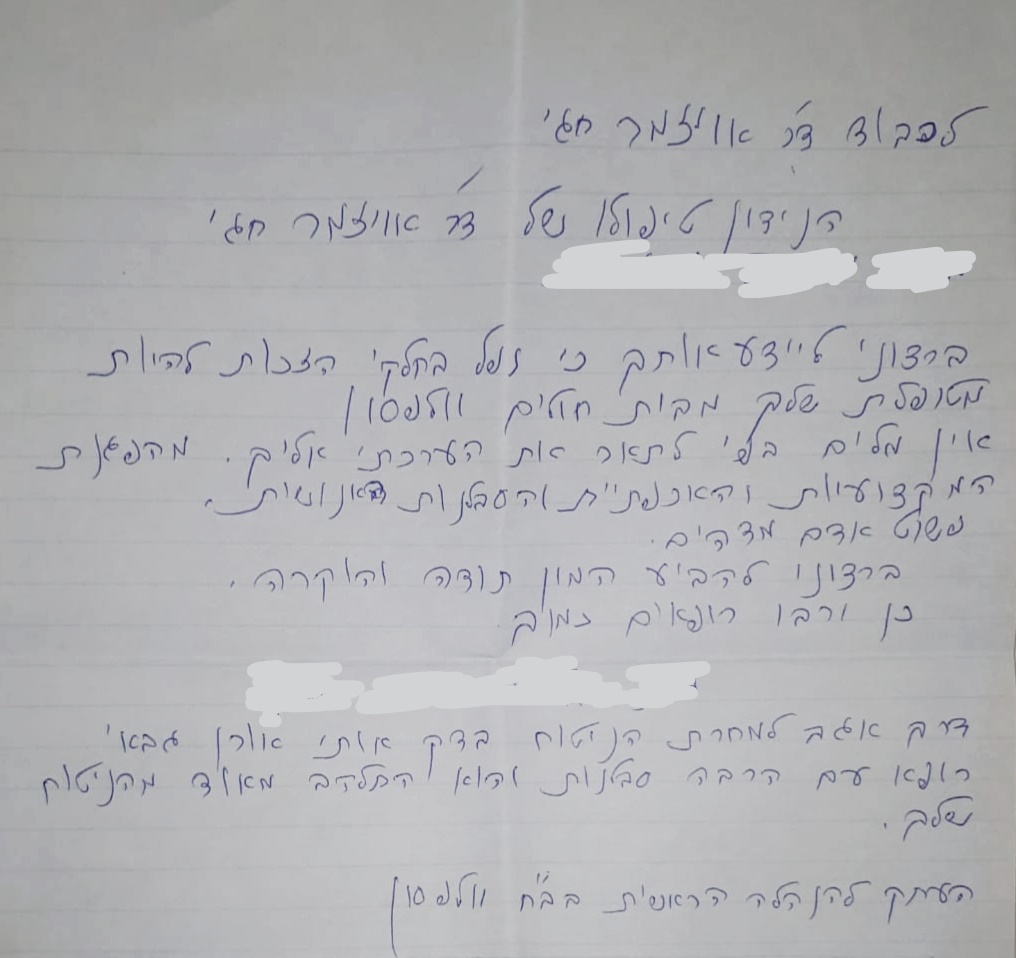 לכבוד ד"ר אוויזמר חגי
הנידון טיפולו של ד"ר אוויזמר חגי
ברצוני ליידע אותך כי נפל בחלקי הזכות להיות
מטופלת שלך מבית חולים וולפסון
אין מלים בפי לתאר את הערכתי אליך. מהפגנת
המקצועיות והאכפתיית והסבלנות האנושית.
פשוט אדם מדהים.
ברצוני להביע המון תודה והוקרה.
כן ירבו רופאים כמוך.
דרך אגב למחרת הניטוח בדק אותי אורן גבאי
רופא עם הרבה סבלנות והוא התלהב מאוד מהניטוח
שלך.
העתק להנהלה הראשית בב"ח וולפסון